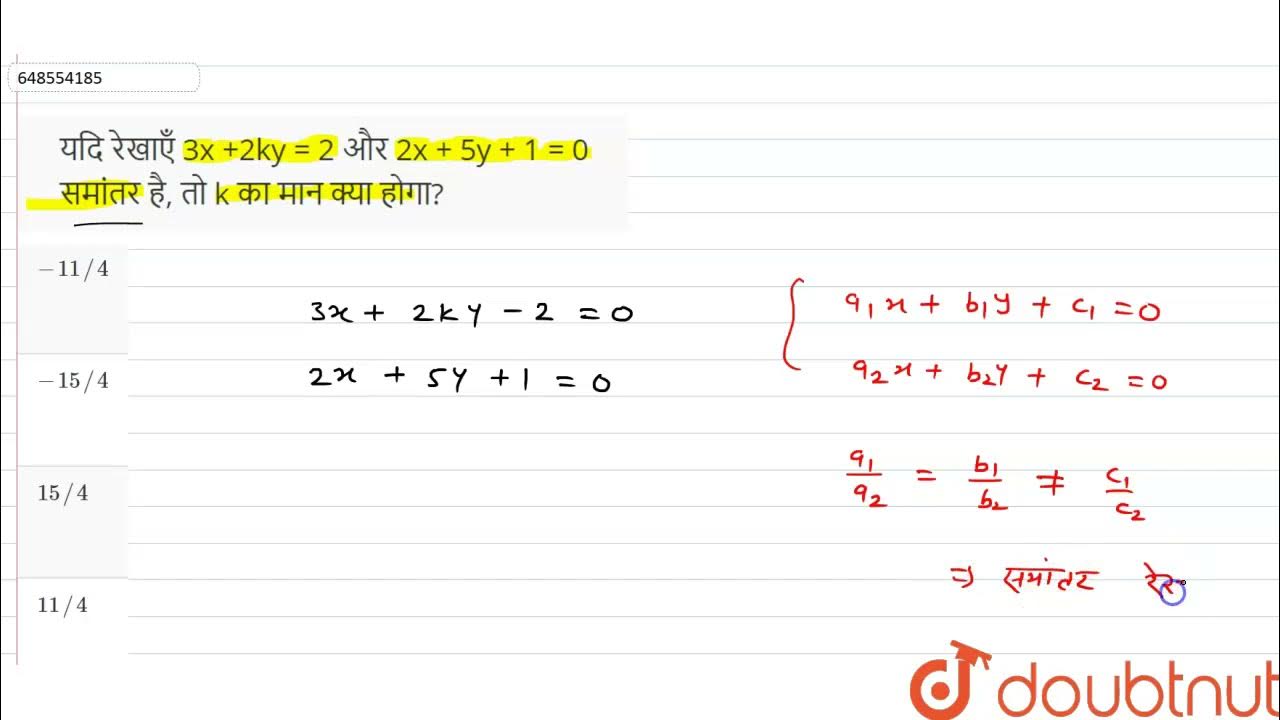 648554185
यदि रेखाएँ 3x +2ky = 2 और 2x + 5y + 1 = 0
समांतर है, तो k का मान क्या होगा?
−11/4
−15/4
15/4
11/4
3x + 2ky − 2 = 0
2x + 5y + 1 = 0
a₁x + b₁y + c₁ = 0
a₂x + b₂y + c₂ = 0
a₁/a₂ = b₁/b₂ ≠ c₁/c₂
⇒ समांतर
doubtnut